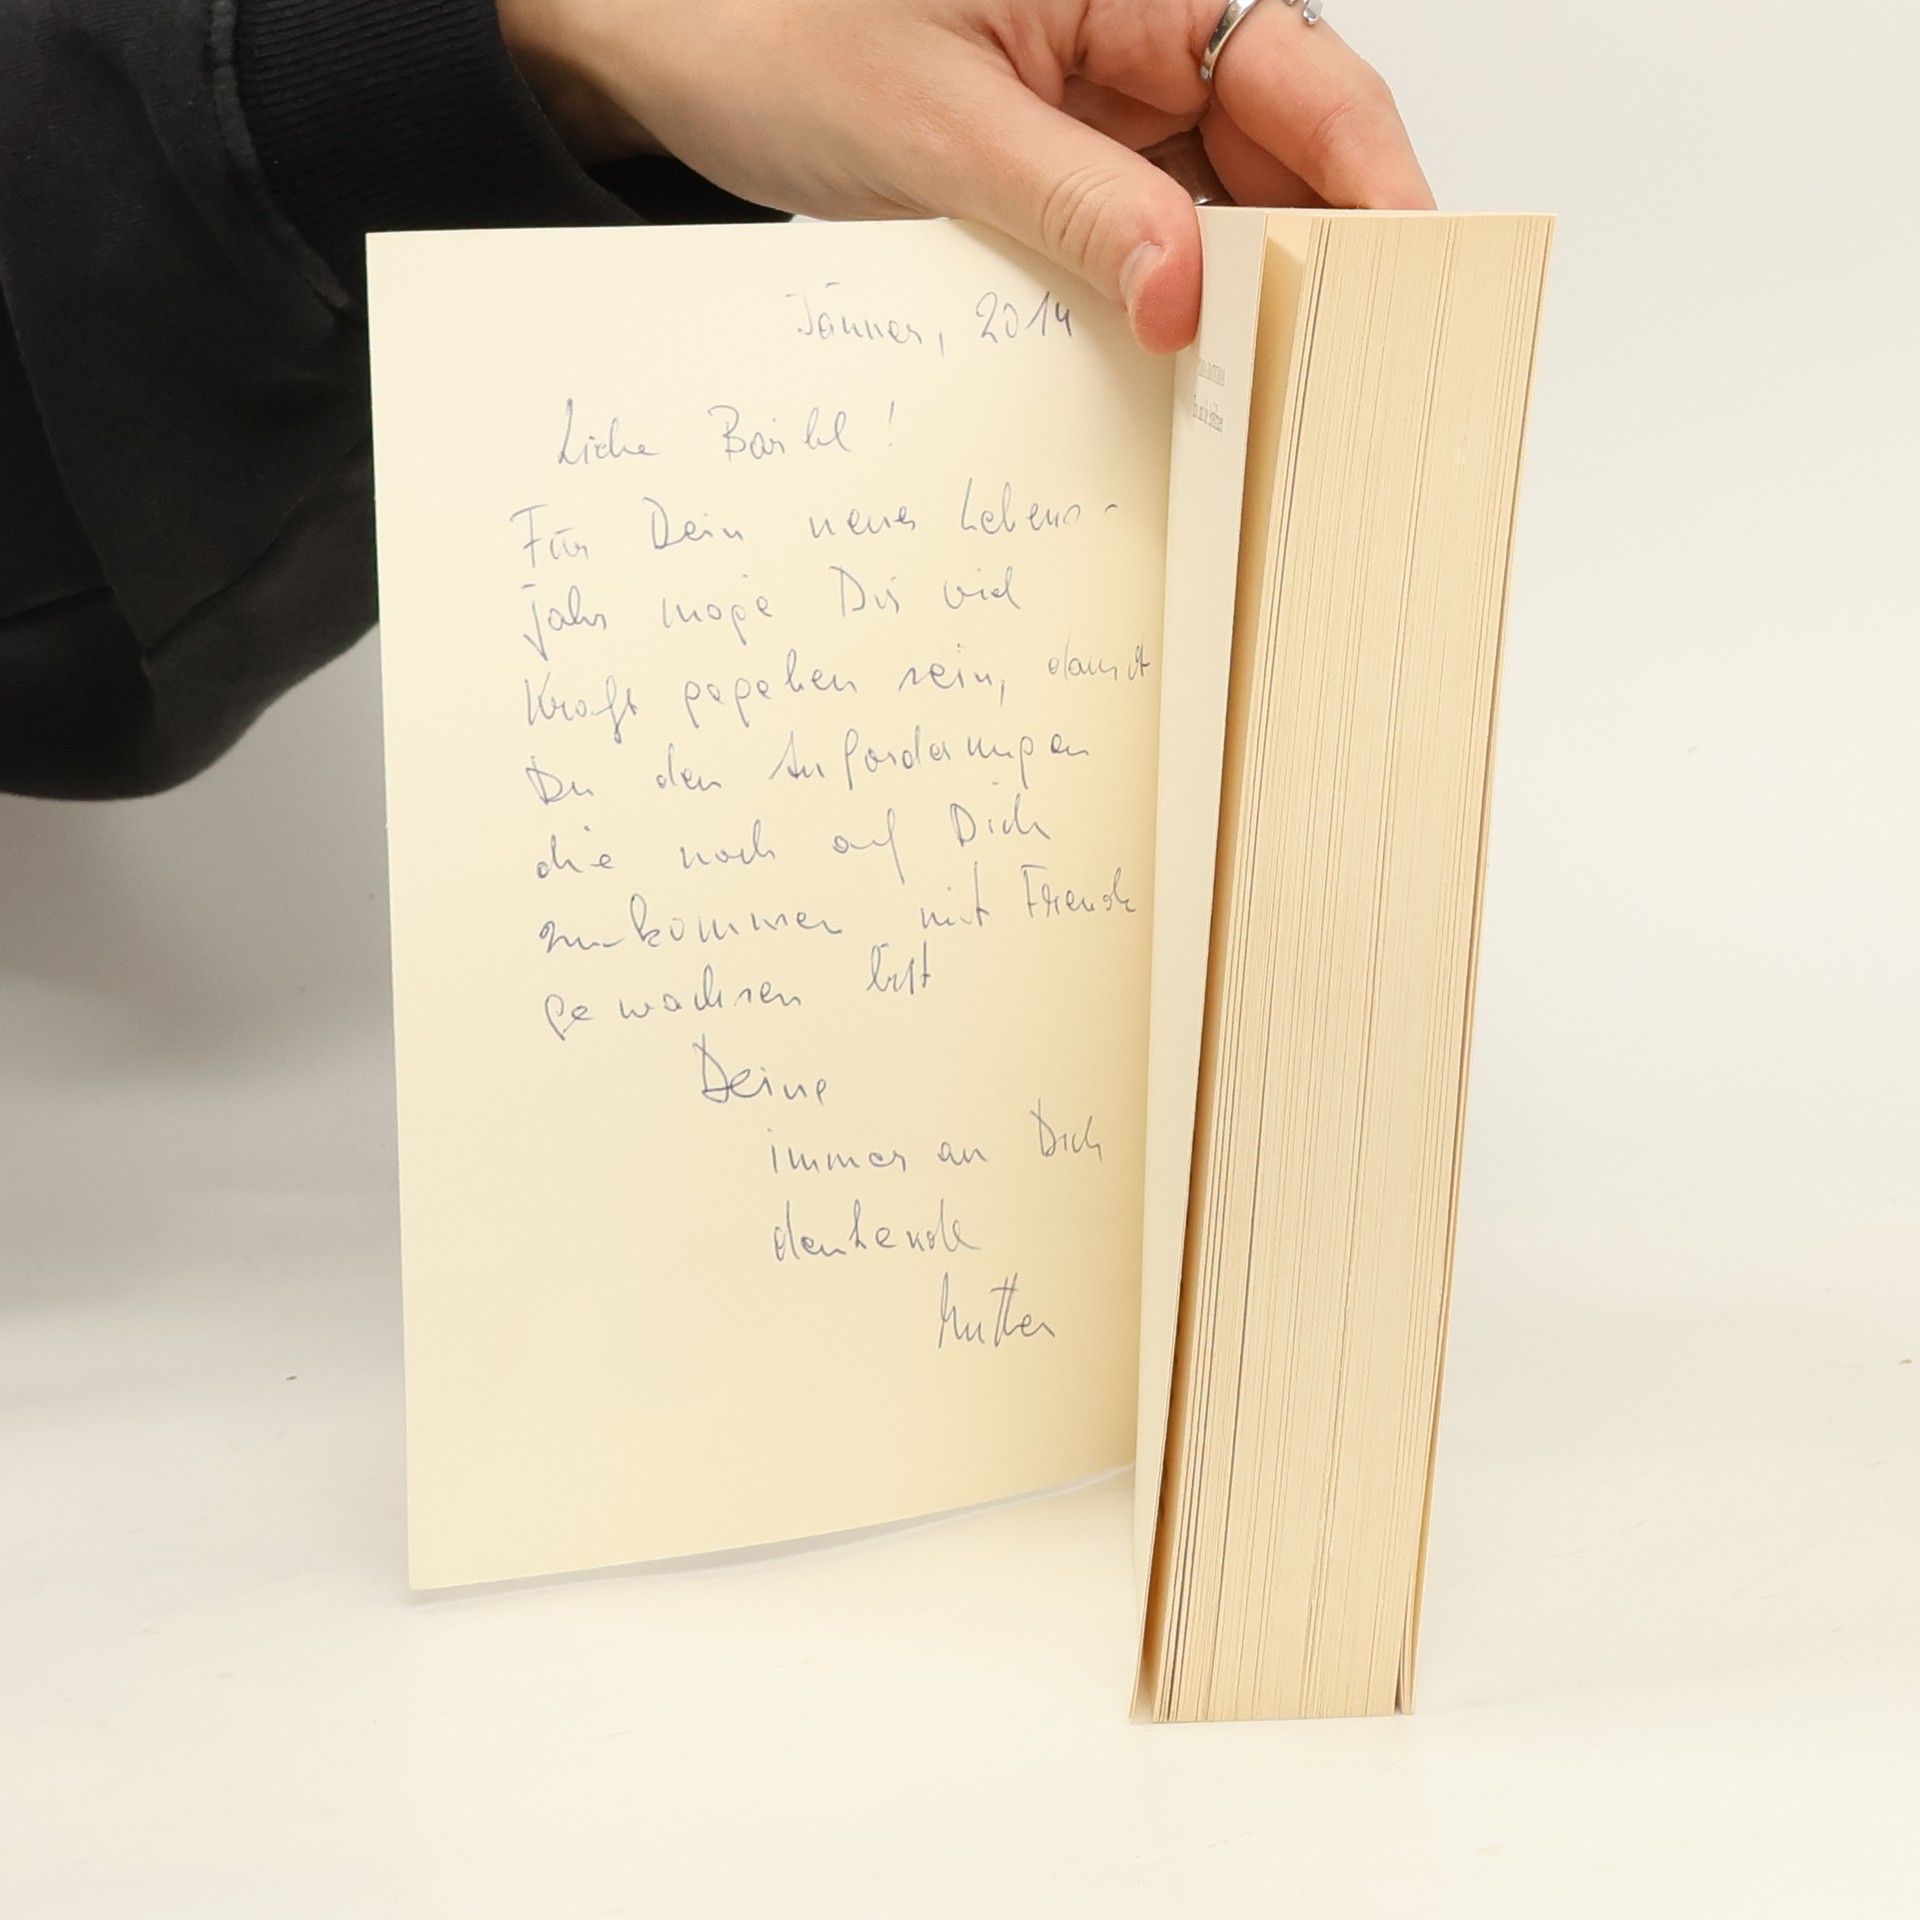 Jänner, 2014
Liebe Bärbl!
Für Dein neues Lebens-
jahr möge Dir viel
Kraft gegeben sein, damit
Du den Anforderungen
die noch auf Dich
zukommen mit Freude
gewachsen bist
Deine
immer an Dich
denkende
Mutter